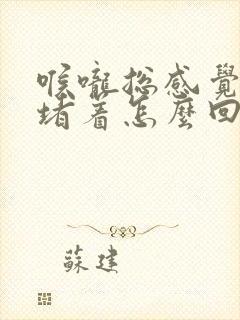 喉嚨總感覺
堵着怎麼回
蘇建